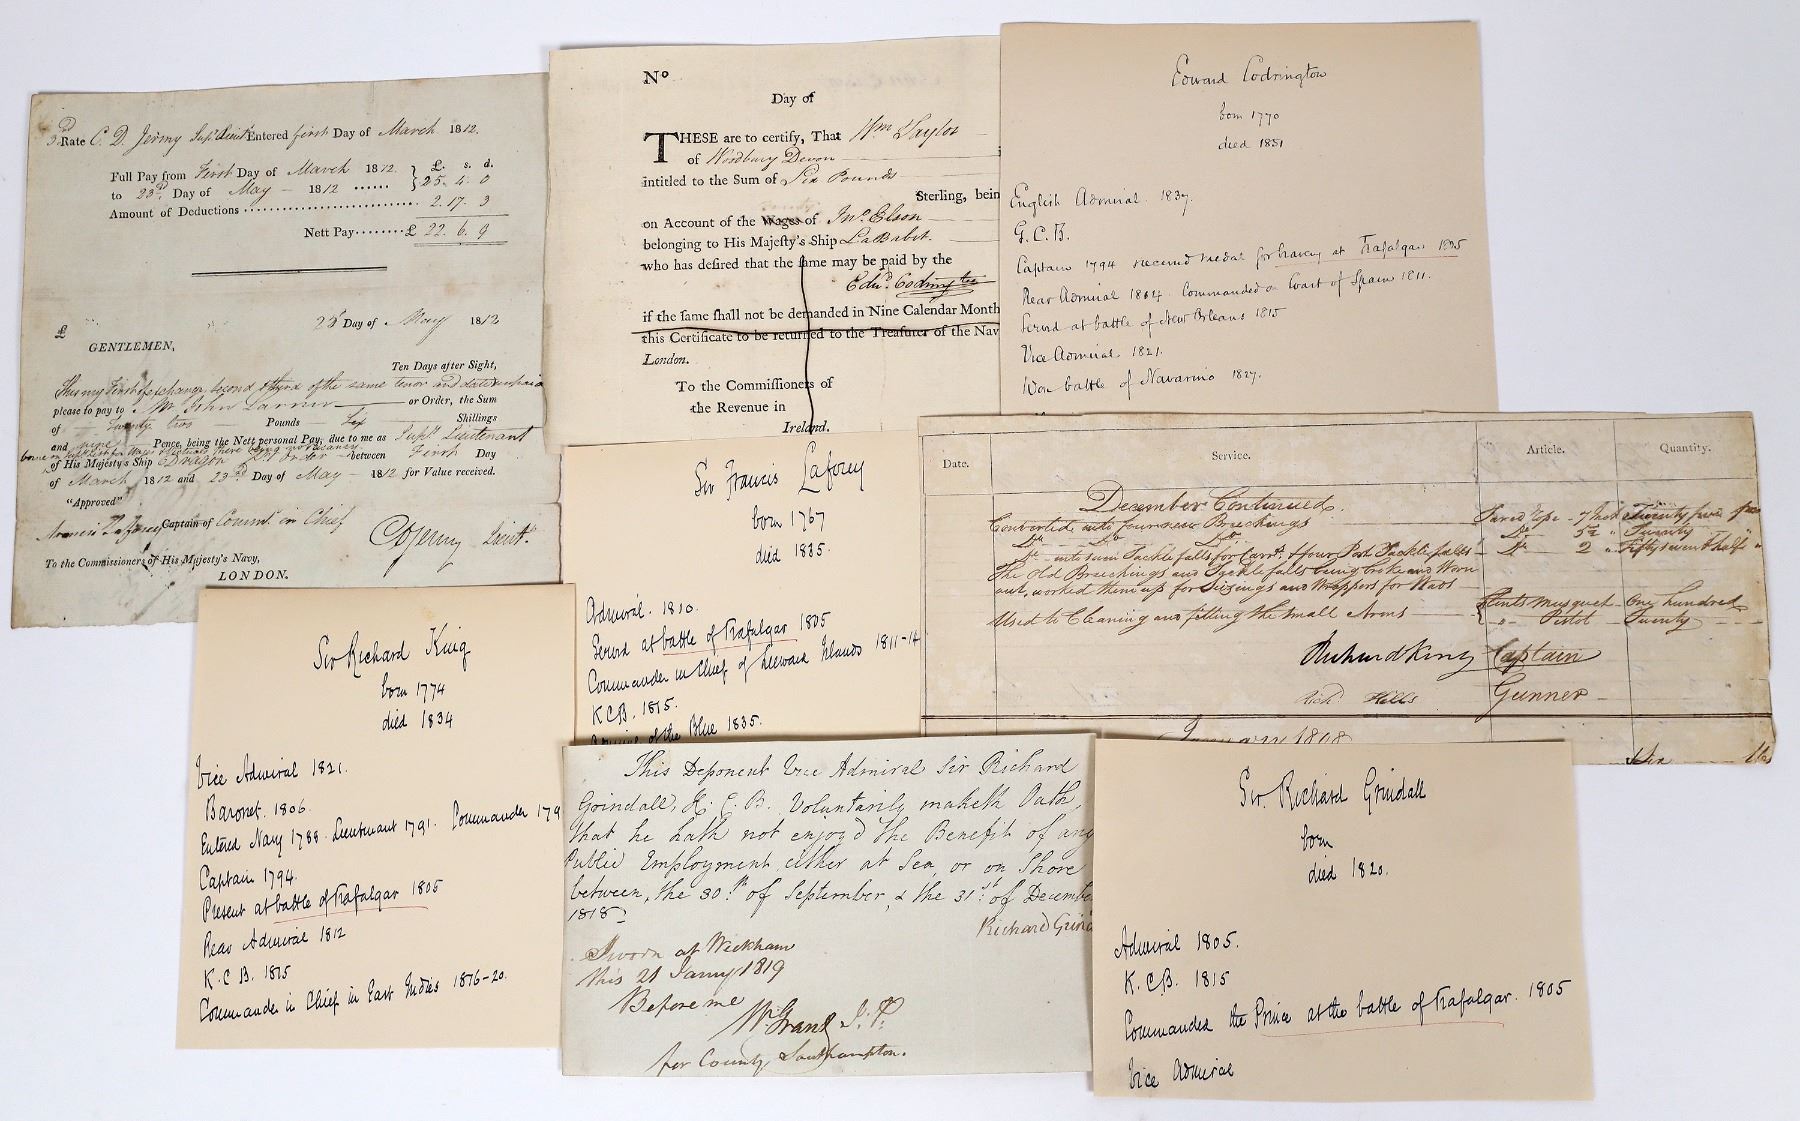 3d Rate C. D. Jermy Supy Lieut Entered first Day of March 1812.
Full Pay from First Day of March 1812
to 23rd Day of May 1812 ......
£. s. d.
25. 4. 0
Amount of Deductions .......... 2. 17. 3
Nett Pay ........ £ 22. 6. 9
23d Day of May 1812
£
GENTLEMEN,
Ten Days after Sight,
This my First of exchange, second & third of the same tenor and date unpaid
please to pay to Mr John Larner or Order, the Sum
of Twenty two Pounds Six Shillings
and nine Pence, being the Nett personal Pay, due to me as Supy Lieutenant
of His Majesty's Ship Dragon between First Day
of March 1812 and 23d Day of May 1812 for Value received.
"Approved"
Francis Laforey Captain of Commr in Chief
CDJermy Lieut.
To the Commissioners of His Majesty's Navy,
LONDON.
No
Day of
THESE are to certify, That Wm Taylor
of Woodbury Devon
intitled to the Sum of Six Pounds
Sterling, bein
on Account of the Wages of Jno. Elson
belonging to His Majesty's Ship La Babet.
who has desired that the same may be paid by the
Edwd. Codrington
if the same shall not be demanded in Nine Calendar Month
this Certificate to be returned to the Treasurer of the Nav
London.
To the Commissioners of
the Revenue in
Ireland.
Edward Codrington
born 1770
died 1851
English Admiral. 1837.
G.C.B.
Captain 1794 received medal for bravery at Trafalgar 1805
Rear Admiral 1814. Commanded on Coast of Spain 1811.
Served at battle of New Orleans 1815
Vice Admiral 1821.
Won battle of Navarino 1827.
Date.
Service.
Article.
Quantity.
December Continued.
Converted into four new Breechings Tared rope 7 Inch Twenty five
Do Do Do Do 5½ " Twenty
Do into sum Tackle falls for Carrs. & four Port Tackle falls Do 2 " Fifty seven & half "
The Old Breechings and Tackle falls being broke and Worn
out, worked them up for Seizings and Wrappers for Wads
Used to Cleaning and fitting the Small Arms Flints Musquet One hundred
" Pistol Twenty
Richard King Captain
Richd. Hills Gunner
January 1808
Sir Francis Laforey
born 1767
died 1835.
Admiral. 1810.
Served at battle of Trafalgar 1805
Commander in Chief of Leeward Islands 1811-14
K.C.B. 1815.
Admiral of the Blue 1835.
Sir Richard King
born 1774
died 1834
Vice Admiral 1821.
Baronet. 1806.
Entered Navy 1788. Lieutenant 1791. Commander 179
Captain 1794.
Present at battle of Trafalgar 1805
Rear Admiral 1812
K.C.B. 1815
Commander in Chief in East Indies 1816-20.
This Deponent Vice Admiral Sir Richard
Grindall, K. C. B. Voluntarily maketh Oath,
that he hath not enjoy'd the Benefit of any
Public Employment either at Sea, or on Shore
between, the 30th of September, & the 31st of Decembe
1818
Richard Grind
Sworn at Wickham
this 21 Jany 1819
Before me
Wm Grant J. P.
for County Southampton.
Sir. Richard Grindall
born
died 1820.
Admiral 1805.
K.C.B. 1815
Commanded the Prince at the battle of Trafalgar. 1805
Vice Admiral